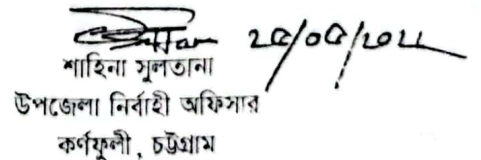 ২৫/০৫/২০২২
শাহিনা সুলতানা
উপজেলা নির্বাহী অফিসার
কর্ণফুলী, চট্টগ্রাম